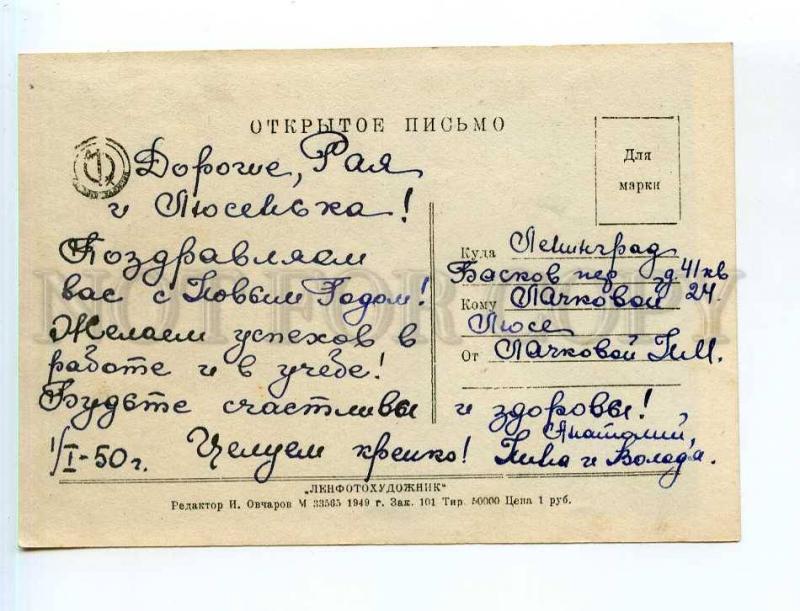 ОТКРЫТОЕ ПИСЬМО
Дорогие, Рая
и Люсенька!
Поздравляем
вас с Новым Годом!
Желаем успехов в
работе и в учебе!
Будьте счастливы и здоровы!
1/I-50 г. Целуем крепко! Анатолий,
Нина и Володя.
Для
марки
Куда Ленинград
Басков пер д. 41 кв
24.
Кому Лачковой
Люсе
От Лачковой Н.М.
„ЛЕНФОТОХУДОЖНИК“
Редактор И. Овчаров М 33565 1949 г. Зак. 101 Тир. 50000 Цена 1 руб.
NOT FOR COPY